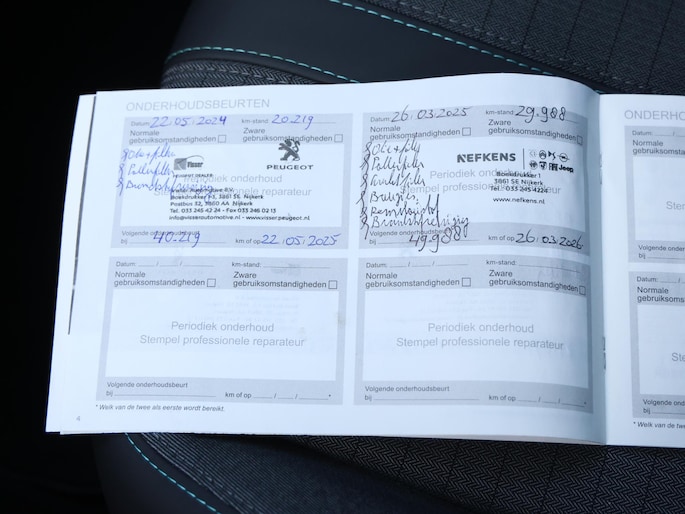 ONDERHOUDSBEURTEN
Datum: 22.05.2024 km-stand: 20.219
Normale gebruiksomstandigheden
Zware gebruiksomstandigheden
Olie+filter
Pollenfilter
Visser
PEUGEOT
PEUGEOT DEALER
Periodiek onderhoud
Stempel professionele reparateur
Boekdrukker 1-3, 3861 SE Nijkerk
Postbus 32, 3860 AA Nijkerk
Tel. 033 245 42 24 - Fax 033 246 02 13
info@visserautomotive.nl - www.visserpeugeot.nl
Volgende onderhoudsbeurt
bij 40.219 km of op 22.05.2025
26.03.2025 km-stand: 29.988
Normale gebruiksomstandigheden
Zware gebruiksomstandigheden
Olie+filter
Pollenfilter
Luchtfilter
Bougies
Remvloeistof
NEFKENS
Jeep
Periodiek onderhoud
Stempel professionele reparateur
Boekdrukker 1
3861 SE Nijkerk
Tel. 033 245 4224
www.nefkens.nl
Volgende onderhoudsbeurt
bij 49.988 km of op 26.03.2026
Datum: / / km-stand:
Normale gebruiksomstandigheden
Zware gebruiksomstandigheden
Periodiek onderhoud
Stempel professionele reparateur
Volgende onderhoudsbeurt
bij km of op / / *
Datum: / / km-stand:
Normale gebruiksomstandigheden
Zware gebruiksomstandigheden
Periodiek onderhoud
Stempel professionele reparateur
Volgende onderhoudsbeurt
bij km of op / / *
* Welk van de twee als eerste wordt bereikt.
4
ONDERHO
Datum:
Normale
gebruiksomst
Stem
Volgende onderh
bij
Datum: /
Normale
gebruiksomst
Stem
Volgende onder
bij
* Welk van de twe